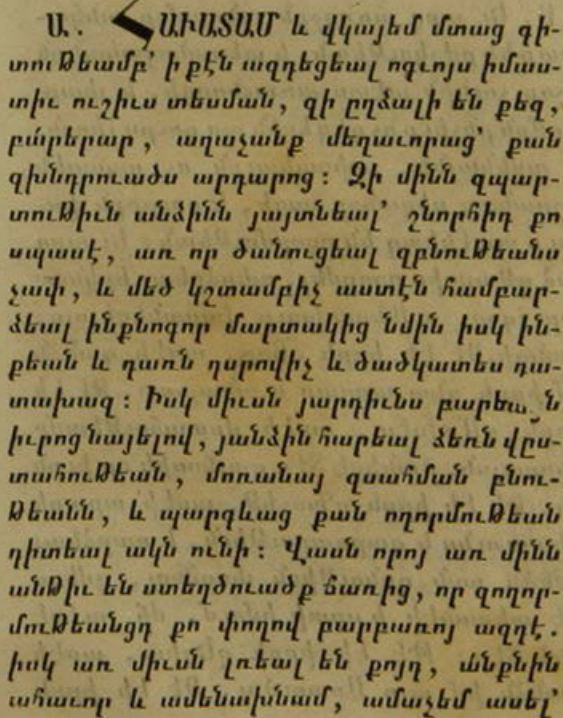 Ա. ՀԱՒԱՏԱՄ և վկայեմ մտաց գի-
տութեամբ՝ ի քէն ազդեցեալ ոգւոյս իմաս-
տիւ ուշիւս տեսման, զի ըղձալի են քեզ,
բարերար, աղաչանք մեղաւորաց՝ քան
զխնդրուածս արդարոց: Զի մինն զպար-
տութիւն անձինն յայտնեալ՝ շնորհիդ քո
սպասէ, առ որ ծանուցեալ զբնութեանս
չափ, և մեծ կշտամբիչ աստէն համբար-
ձեալ ինքնոգոր մարտակից նմին իսկ ին-
քեան և դառն դսրովիչ և ծածկատես դա-
տախազ: Իսկ միւսն յարդիւնս բարեաց ն
իւրոց նայելով, յանձին հարեալ ձեռն վըս-
տահութեան, մոռանայ զսահման բնու-
թեանն, և պարգևաց քան ողորմութեան
դիտեալ ակն ունի: Վասն որոյ առ մինն
անթիւ են ստեղծուածք ճառից, որ զողոր-
մութեանցդ քո փողով բարբառոյ ազդէ.
իսկ առ միւսն լռեալ են քոյդ, անքնին
ահաւոր և ամենախնամ, ամաչեմ ասել՝